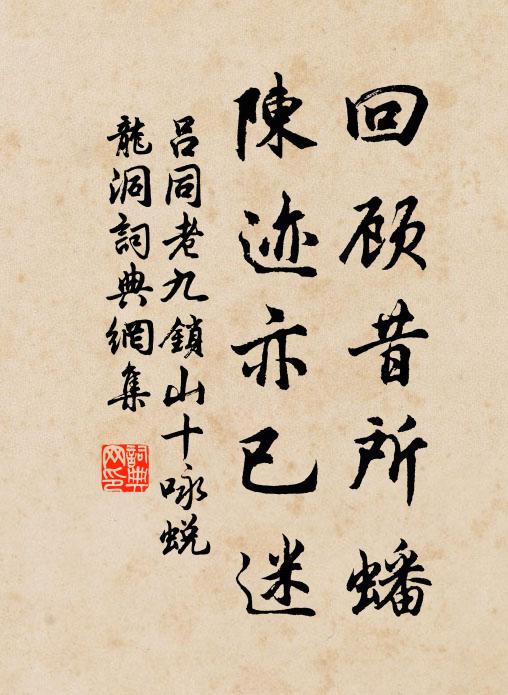 回顾昔所蟠
陳迹亦已迷
吕同老九鎖山十咏蜕
龍洞詞典網集
詞典网印